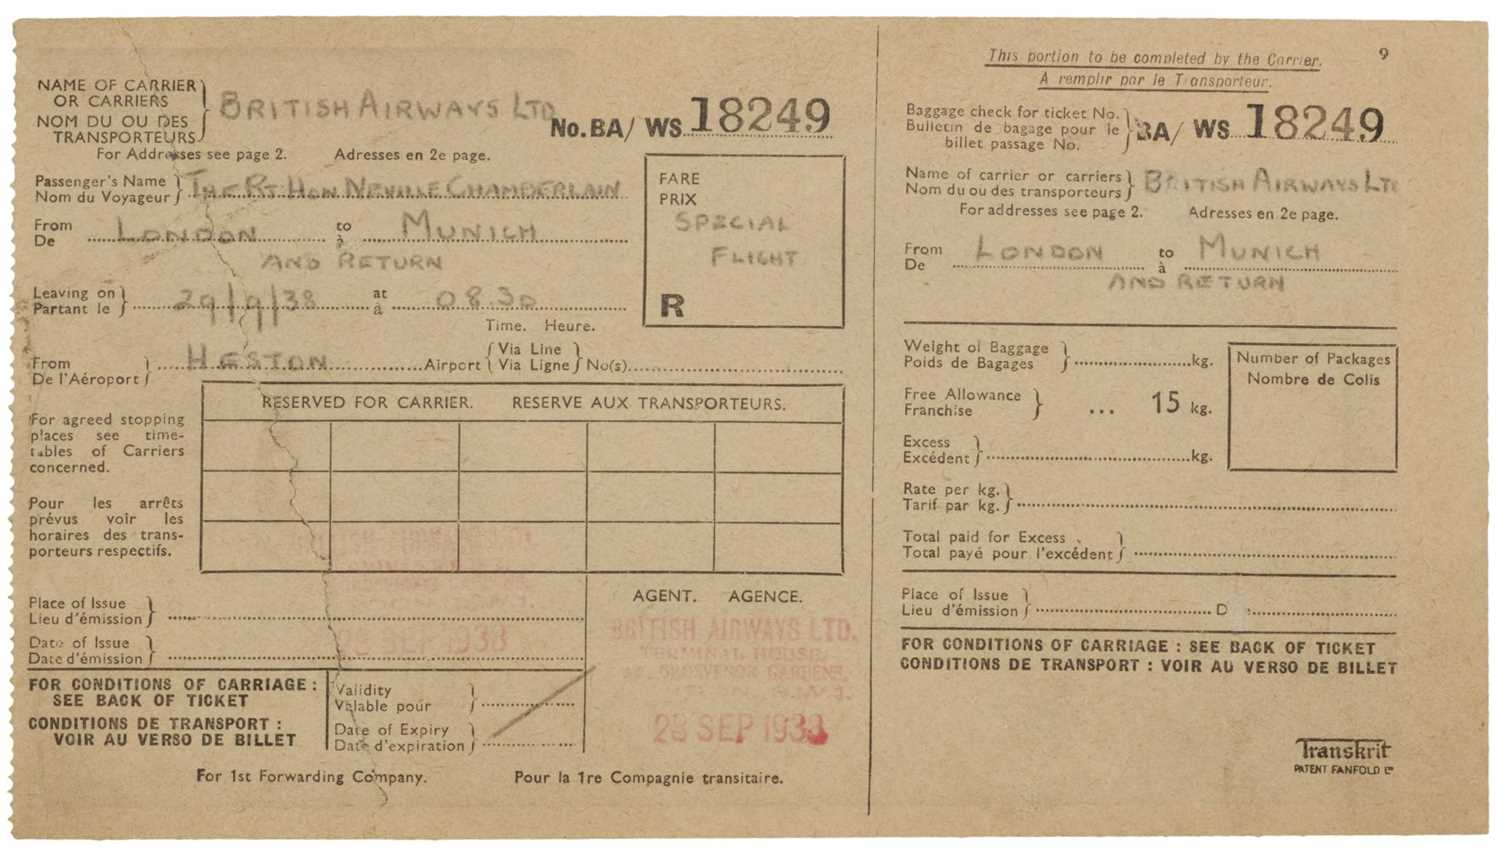 NAME OF CARRIER
OR CARRIERS
NOM DU OU DES
TRANSPORTEURS
BRITISH AIRWAYS LTD
No. BA/ WS 18249
For Addresses see page 2. Adresses en 2e page.
Passenger's Name
Nom du Voyageur
THE RT HON NEVILLE CHAMBERLAIN
From
De
LONDON
to
à
MUNICH
AND RETURN
Leaving on
Partant le
29/9/38
at
à
08.30
Time. Heure.
FARE
PRIX
SPECIAL
FLIGHT
R
From
De l'Aéroport
HESTON
Airport
Via Line
Via Ligne
No(s)
For agreed stopping
places see time-
tables of Carriers
concerned.
Pour les arrêts
prévus voir les
horaires des trans-
porteurs respectifs.
RESERVED FOR CARRIER. RESERVE AUX TRANSPORTEURS.
Place of Issue
Lieu d'émission
Date of Issue
Date d'émission
28 SEP 1938
AGENT. AGENCE.
BRITISH AIRWAYS LTD.
TERMINAL HOUSE,
GROSVENOR GARDENS,
28 SEP 1938
FOR CONDITIONS OF CARRIAGE :
SEE BACK OF TICKET
CONDITIONS DE TRANSPORT :
VOIR AU VERSO DE BILLET
Validity
Valable pour
Date of Expiry
Date d'expiration
For 1st Forwarding Company. Pour la 1re Compagnie transitaire.
This portion to be completed by the Carrier.
A remplir par le Transporteur.
9
Baggage check for ticket No.
Bulletin de bagage pour le
billet passage No.
BA/ WS 18249
Name of carrier or carriers
Nom du ou des transporteurs
BRITISH AIRWAYS LTD
For addresses see page 2. Adresses en 2e page.
From
De
LONDON
to
à
MUNICH
AND RETURN
Weight of Baggage
Poids de Bagages
kg.
Number of Packages
Nombre de Colis
Free Allowance
Franchise
... 15 kg.
Excess
Excédent
kg.
Rate per kg.
Tarif par kg.
Total paid for Excess
Total payé pour l'excédent
Place of Issue
Lieu d'émission
D
FOR CONDITIONS OF CARRIAGE : SEE BACK OF TICKET
CONDITIONS DE TRANSPORT : VOIR AU VERSO DE BILLET
Transkrit
PATENT FANFOLD LD